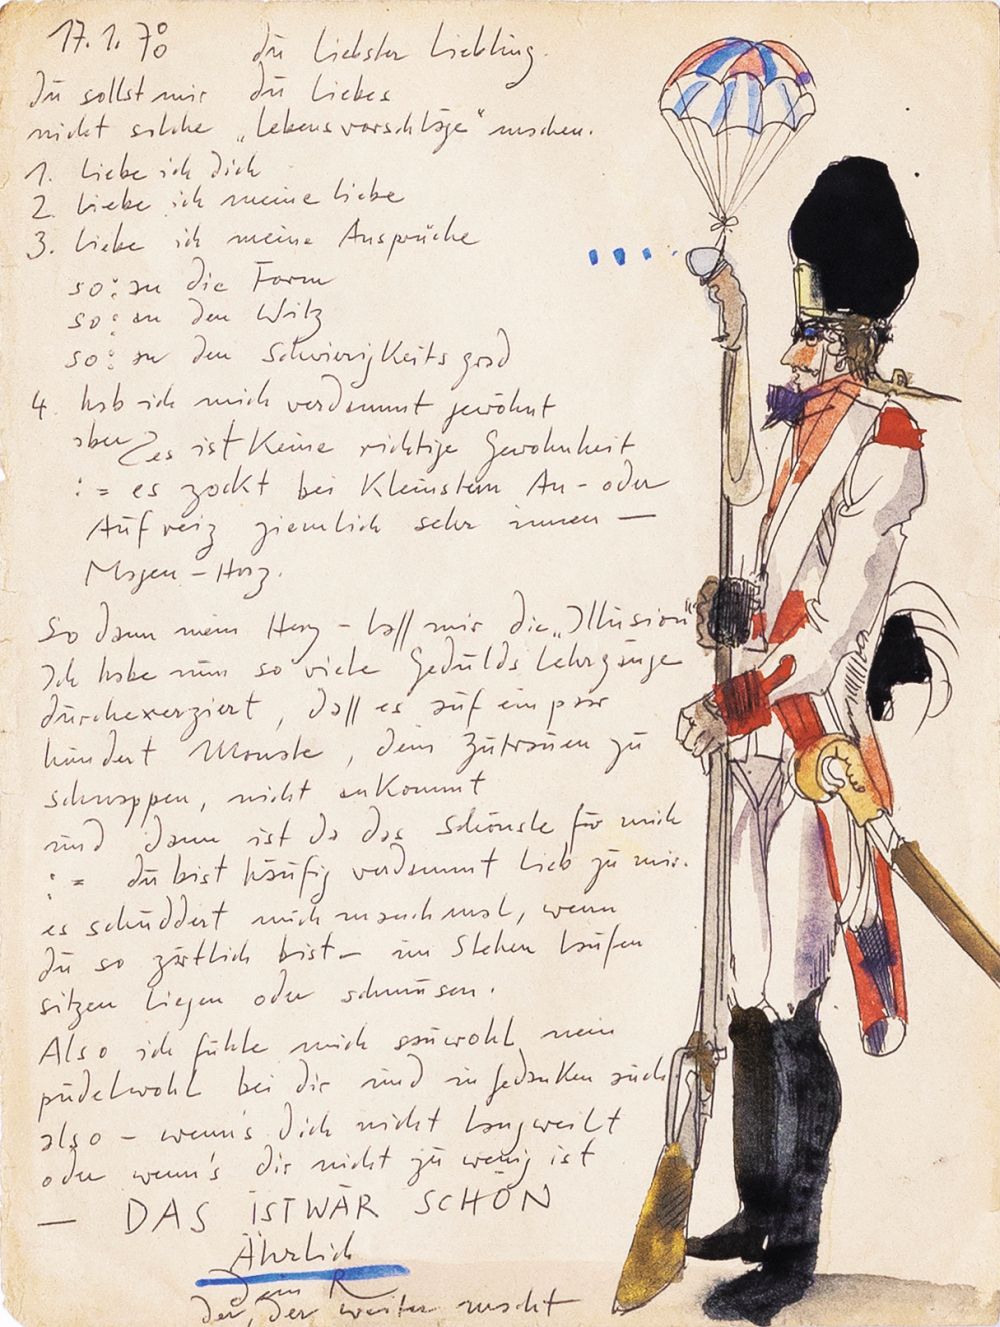 17.1.70 Du liebster Liebling.
Du sollst mir Du Liebes
nicht solche „Lebensvorschläge" machen.
1. Liebe ich Dich
2. Liebe ich meine Liebe
3. Liebe ich meine Ansprüche
so: an die Form
so: an den Witz
so: an den Schwierigkeitsgrad
4. hab ich mich verdammt gewöhnt
aber es ist keine richtige Gewohnheit
:= es zockt bei kleinstem An- oder
Aufreiz ziemlich sehr innen —
Magen - Herz.
So dann mein Herz - laß mir die „Illusion"
Ich habe nun so viele Geduldslehrgänge
durchexerziert, daß es auf ein paar
hundert Monate, dein Zutrauen zu
schnappen, nicht ankommt
und dann ist da das Schönste für mich
:= du bist häufig verdammt lieb zu mir.
es schuddert mich manchmal, wenn
du so zärtlich bist - im Stehen laufen
sitzen liegen oder schmusen.
Also ich fühle mich sauwohl nein
pudelwohl bei dir und in Gedanken auch.
also - wenn's Dich nicht langweilt
oder wenn's dir nicht zu wenig ist
— DAS IST WÄR SCHÖN
Ährlich
Dein R
der, der weiter macht